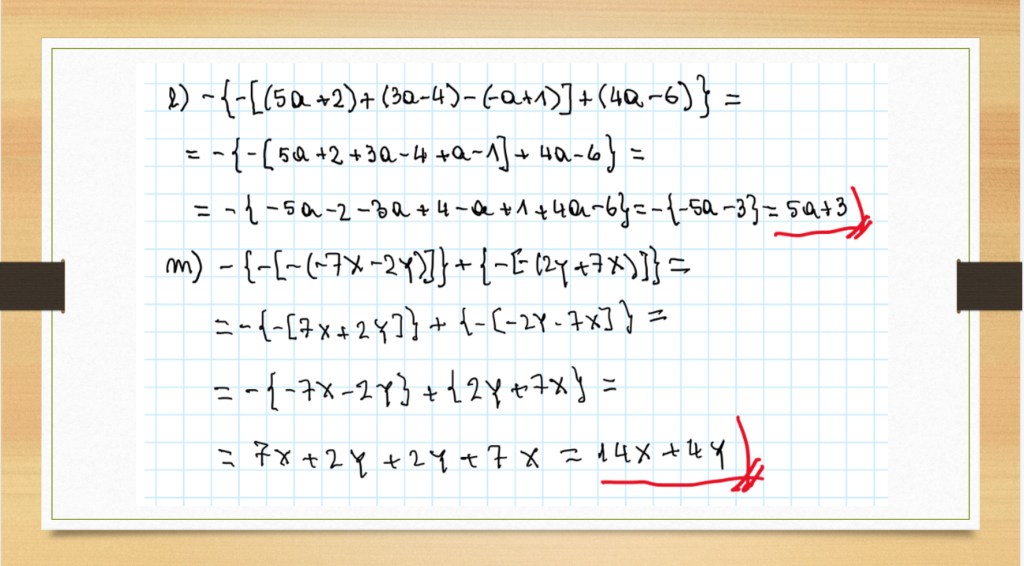 l) -{-[(5a+2)+(3a-4)-(-a+1)]+(4a-6)} =
= -{-[5a+2+3a-4+a-1]+4a-6} =
= -{-5a-2-3a+4-a+1+4a-6}=-{-5a-3}=5a+3
m) -{-[-(-7x-2y)]}+{-[-(2y+7x)]}=
=-{-[7x+2y]}+{-[-2y-7x]}=
=-{-7x-2y}+{2y+7x}=
= 7x+2y+2y+7x = 14x+4y